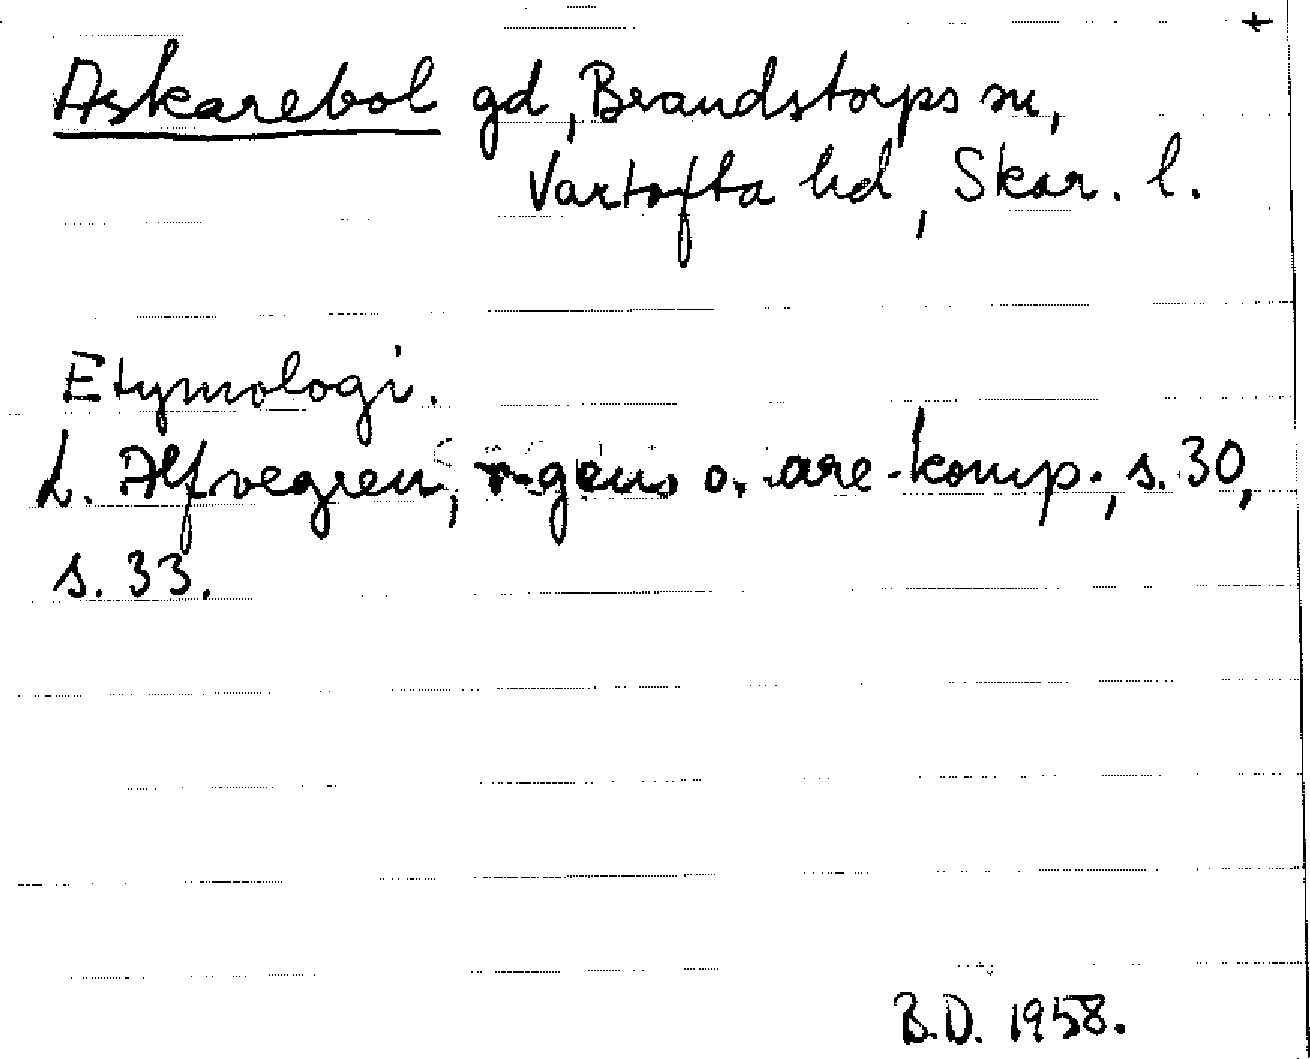 Askarebol gd, Brandstorps sn,
Vartofta hd, Skar. l.
Etymologi.
L. Alfvegren, r-gens o. are-komp., s. 30,
s. 33.
B.D. 1958.